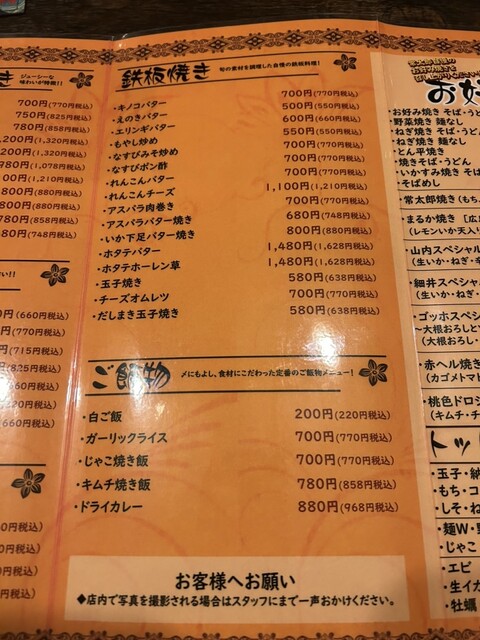 き ジューシーな
味わいが特徴!!
700円(770円税込)
750円(825円税込)
780円(858円税込)
,200円(1,320円税込)
,200円(1,320円税込)
980円(1,078円税込)
00円(1,210円税込)
800円(880円税込)
800円(880円税込)
780円(858円税込)
80円(748円税込)
い!!
円(660円税込)
円(770円税込)
円(715円税込)
円(825円税込)
(660円税込)
(770円税込)
(660円税込)
鉄板焼き 旬の素材を調理した自慢の鉄板料理!
・キノコバター 700円(770円税込)
・えのきバター 500円(550円税込)
・エリンギバター 600円(660円税込)
・もやし炒め 550円(605円税込)
・なすびみそ炒め 700円(770円税込)
・なすびポン酢 700円(770円税込)
・れんこんバター 700円(770円税込)
・れんこんチーズ 1,100円(1,210円税込)
・アスパラ肉巻き 700円(770円税込)
・アスパラバター焼き 680円(748円税込)
・いか下足バター焼き 800円(880円税込)
・ホタテバター 1,480円(1,628円税込)
・ホタテホーレン草 1,480円(1,628円税込)
・玉子焼き 580円(638円税込)
・チーズオムレツ 700円(770円税込)
・だしまき玉子焼き 580円(638円税込)
ご飯物 〆にもよし、食材にこだわった定番のご飯物メニュー!
・白ご飯 200円(220円税込)
・ガーリックライス 700円(770円税込)
・じゃこ焼き飯 700円(770円税込)
・キムチ焼き飯 780円(858円税込)
・ドライカレー 880円(968円税込)
お客様へお願い
◆店内で写真を撮影される場合はスタッフにまで一声おかけください。
お好
・お好み焼き そば・うど
・野菜焼き 麺なし
・ねぎ焼き そば・うど
・ねぎ焼き 麺なし
・とん平焼き
・焼きそば・うどん
・いかすみ焼き そば
・そばめし
・常太郎焼き(もち、
・まるか焼き [広
(レモンいか天入り
・山内スペシャル
(生いか・ねぎ・キ
・細井スペシャ
(生いか・ねぎ・
・ゴッホスペシャ
〜大根おろしと
(大根おろし・
・赤ヘル焼き
(カゴメトマト
・桃色ドロシ
(キムチ・チ
トッ
・玉子・納
・もち・コ
・しそ・ね
・麺W・
・じゃこ
・エビ
・生イカ
・牡蠣